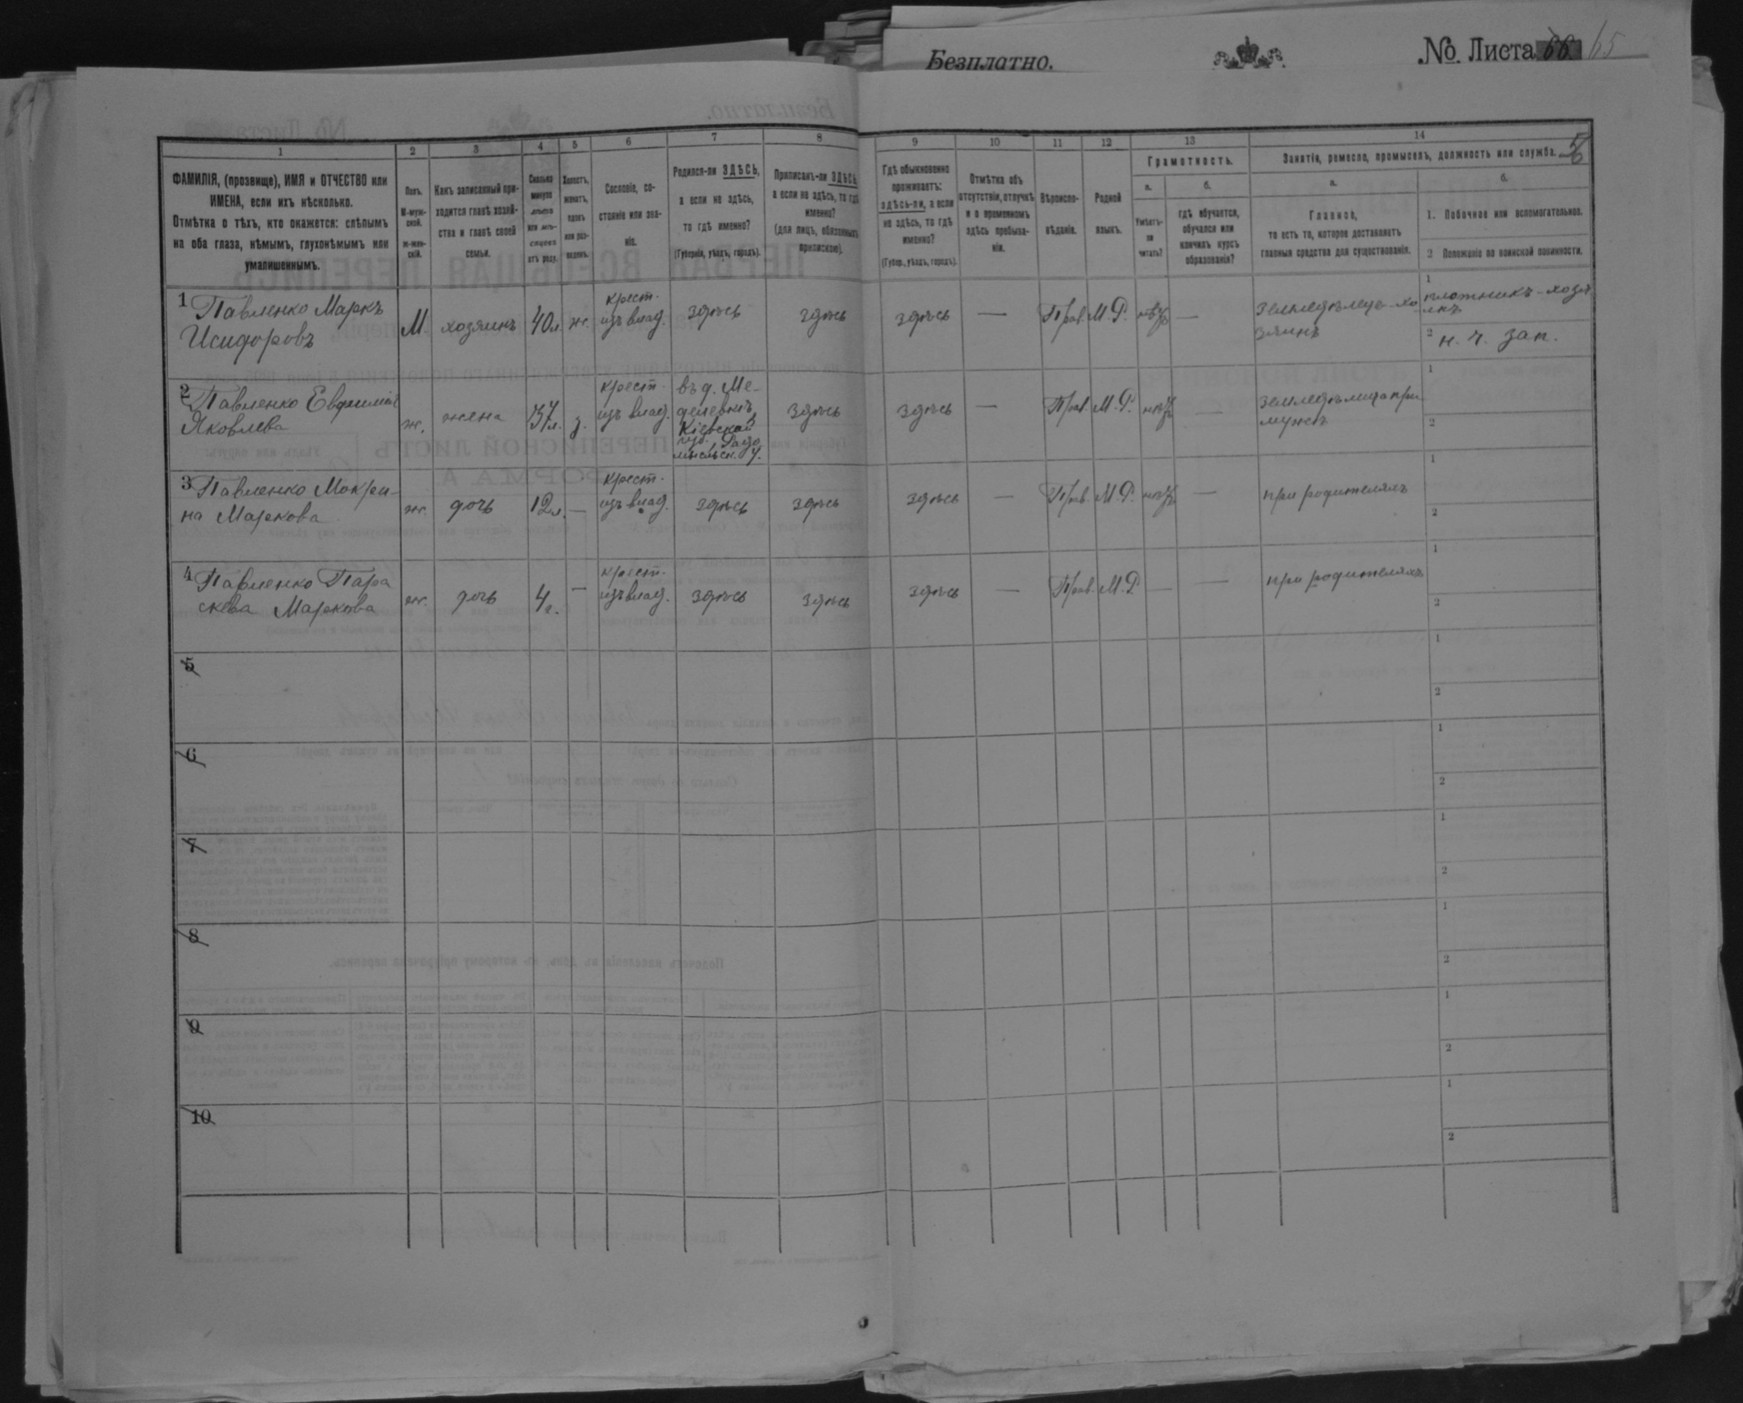 Безплатно.
№ Листа 66 65
56
1 2 3 4 5 6 7 8 9 10 11 12 13 14
ФАМИЛІЯ, (прозвище), ИМЯ и ОТЧЕСТВО или
ИМЕНА, если ихъ нѣсколько.
Отмѣтка о тѣхъ, кто окажется: слѣпымъ
на оба глаза, нѣмымъ, глухонѣмымъ или
умалишеннымъ.
Полъ.
М-муж-
ской.
ж-жен-
скій.
Какъ записанный при-
ходится главѣ хозяй-
ства и главѣ своей
семьи.
Сколько
минуло
лѣтъ
или мѣ-
сяцевъ
отъ роду.
Холостъ,
женатъ,
вдовъ
или раз-
веденъ.
Сословіе, со-
стояніе или зва-
ніе.
Родился-ли ЗДѢСЬ,
а если не здѣсь,
то гдѣ именно?
(Губернія, уѣздъ, городъ).
Приписанъ-ли ЗДѢСЬ,
а если не здѣсь, то гдѣ
именно?
(для лицъ, обязанныхъ
припискою).
Гдѣ обыкновенно
проживаетъ:
здѣсь-ли, а если
не здѣсь, то гдѣ
именно?
(Губер., уѣздъ, городъ).
Отмѣтка объ
отсутствіи, отлучкѣ
и о временномъ
здѣсь пребыва-
ніи.
Вѣроиспо-
вѣданіе.
Родной
языкъ.
Грамотность.
а.
Умѣетъ-
ли
читать?
б.
гдѣ обучается,
обучался или
кончилъ курсъ
образованія?
Занятіе, ремесло, промыселъ, должность или служба.
а.
Главное,
то есть то, которое доставляетъ
главныя средства для существованія.
б.
1. Побочное или вспомогательное.
2 Положеніе по воинской повинности.
1 Павленко Маркъ
Исидоровъ
М хозяинъ 40 л. ж.
крест.
изъ влад.
здѣсь здѣсь здѣсь — Прав. М.Р. —
земледѣлецъ-хо
зяинъ
1 плотникъ-хозя
инъ
2 н. ч. зап.
2 Павленко
Яковлева
ж. жена 37 л. з.
крест.
изъ влад.
въ д. Ме-
Кіевской
губ.
здѣсь здѣсь — Прав. М.Р. —
при
мужѣ
1
2
3 Павленко Макри-
на Маркова
ж. дочь 12 л. —
крест.
изъ влад.
здѣсь здѣсь здѣсь — Прав. М.Р. —
при родителяхъ
1
2
4 Павленко Пара
скева Маркова
ж. дочь 4 г. —
крест.
изъ влад.
здѣсь здѣсь здѣсь — Прав. М.Р. — —
при родителяхъ
1
2
5
1
2
6
1
2
7
1
2
8
1
2
9
1
2
10
1
2